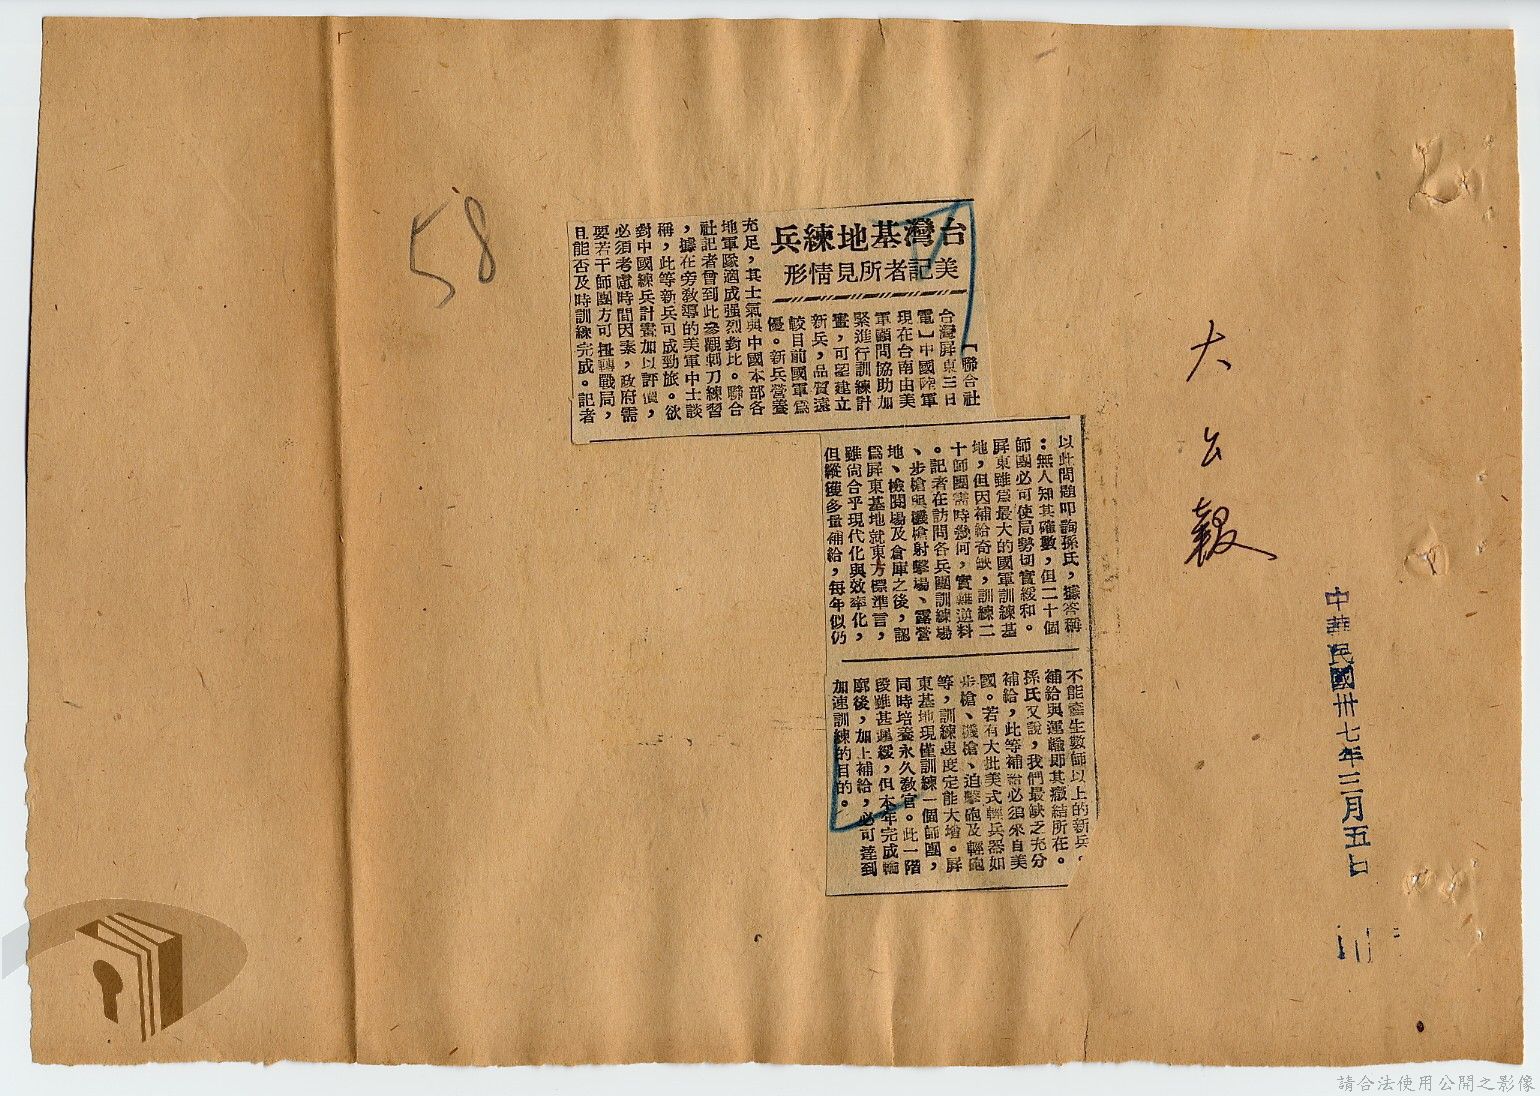 大公報
中華民國卅七年三月五日
58
台灣基地練兵
美記者所見情形
【聯合社
台灣屏東三日
電】中國陸軍
現在台南由美
軍顧問協助加
緊進行訓練計
畫,可望建立
新兵,品質遠
較目前國軍為
優。新兵營養
充足,其士氣與中國本部各
地軍隊適成强烈對比。聯合
社記者曾到此參觀刺刀練習
,據在旁教導的美軍中士談
稱,此等新兵可成勁旅。欲
對中國練兵計畫加以評價,
必須考慮時間因素,政府需
要若干師團方可扭轉戰局,
且能否及時訓練完成。記者
以此問題叩詢孫氏,據答稱
:無人知其確數,但二十個
師團必可使局勢切實緩和。
屏東雖為最大的國軍訓練基
地,但因補給奇缺,訓練二
十師團需時幾何,實難逆料
。記者在訪問各兵團訓練場
、步槍與機槍射擊場、露營
地、檢閱場及倉庫之後,認
為屏東基地就東方標準言,
雖尚合乎現代化與效率化,
但縱獲多量補給,每年似仍
不能產生數師以上的新兵,
補給與運輸即其癥結所在。
孫氏又說,我們最缺乏充分
補給,此等補給必須來自美
國。若有大批美式輕兵器如
步槍、機槍、迫擊砲及輕砲
等,訓練速度定能大增。屏
東基地現僅訓練一個師團,
同時培養永久教官。此一階
段雖甚遲緩,但本年完成輪
廓後,加上補給,必可達到
加速訓練的目的。
請合法使用公開之影像